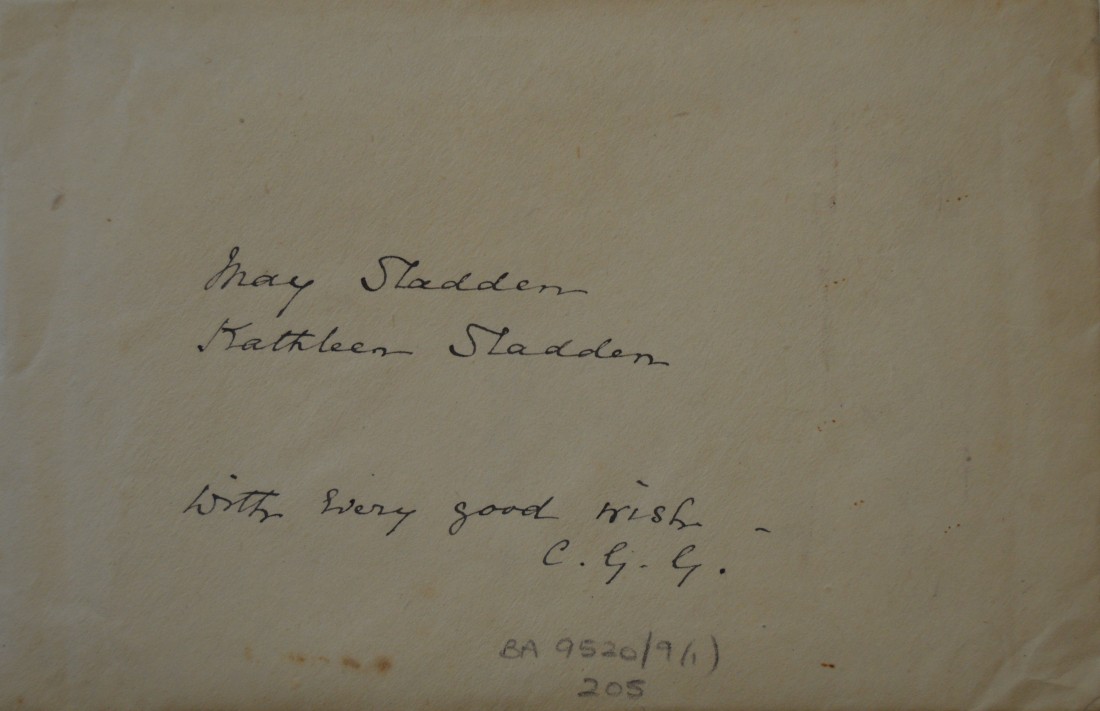 May Sladden
Kathleen Sladden
With every good wish -
C. G. G.
BA 9520/9(1)
205